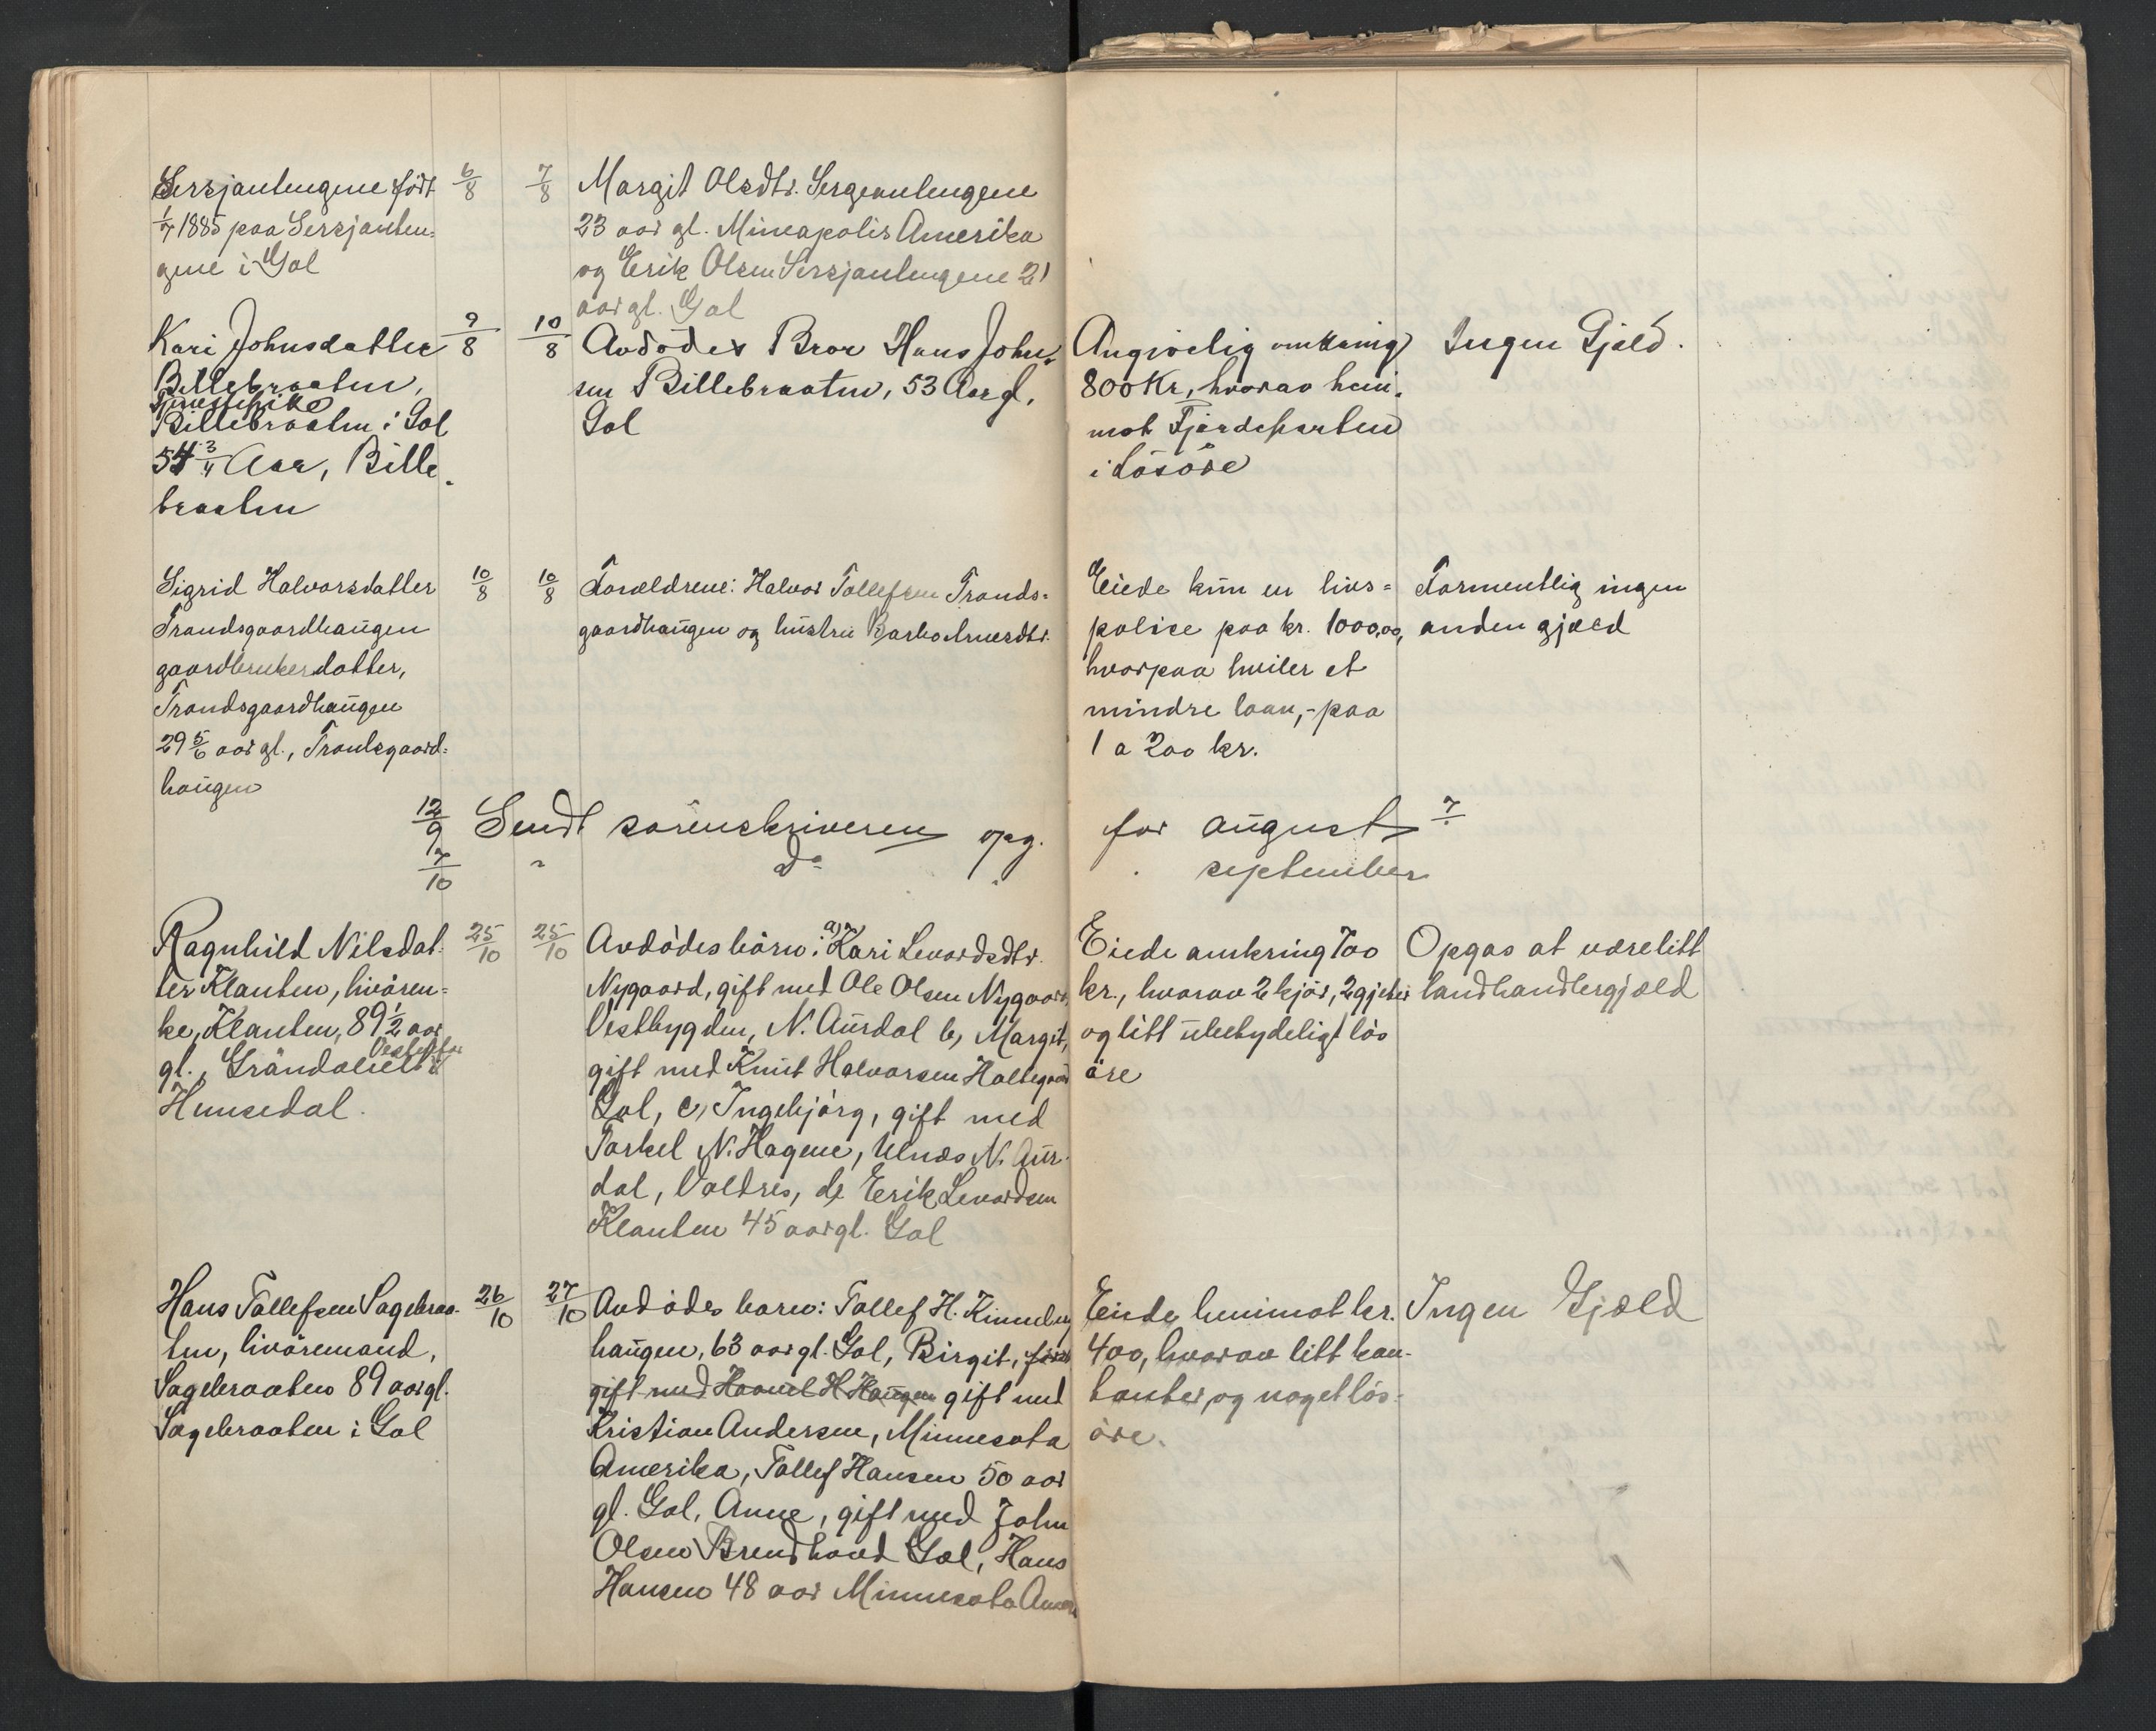 Sersjantengene född 6/8 7/8 Margit Olsdtr. Sergeantengene
1/7 1885 paa Sersjanten- 23 aar gl. Mineapolis Amerika
gene i Gol og Erik Olsen Sersjantengene 21
aar gl. Gol
Kari Johnsdatter 9/8 10/8 Avdødes Bror Hans John- Angivelig omkring Ingen Gjæld.
Billebraaten, sen Billebraaten, 53 Aar gl. 800 Kr, hvorav hen-
Tjenestepike Gol mot Fjerdeparten
Billebraaten i Gol i Løsøre
54 3/4 Aar, Bille-
braaten
Sigrid Halvorsdatter 10/8 10/8 Forældrene: Halvor Tollefsen Trands- Eiede kun en livs= Formentlig ingen
Trandsgaardhaugen gaardhaugen og hustru Barbo Arnesdtr. police paa kr. 1000,00, anden gjæld
gaardbrukerdatter, hvorpaa hviler et
Trandsgaardhaugen mindre laan, - paa
29 5/6 aar gl., Trandsgaard= 1 a 200 kr.
haugen
12/9 Sendt sorenskriveren opg. for august
7/10 " do " september
Ragnhild Nilsdat- 25/10 25/10 Avdødes børn: a) Kari Levordsdtr. Eiede omkring 700 Opgas at være litt
ter Klanten, livøren= Nygaard, gift med Ole Olsen Nygaard, kr., hvorav 2 kjør, 2 gjeter landhandlergjæld
ke, Klanten, 89 1/2 aar Vestbygden, N. Aurdal b, Margit, og litt ubetydeligt løs
gl., Grøndaliet i gift med Knut Halvorsen Haltegaard øre
Hemsedal. Gol, c, Ingebjørg, gift med
Torkel N. Hagene, Ulnæs N. Aur-
dal, Valdres, d, Erik Levordsen
Klanten 45 aar gl. Gol
Hans Tollefsen Sagebraa- 26/10 27/10 Avdødes barn: Tollef H. Eiede henimot kr. Ingen Gjæld
ten, livøremand, haugen, 63 aar gl. Gol, Birgit, 400, hvorav litt kon-
Sagebraaten 89 aar gl. gift med H. Haugen gift med tanter og noget løs-
Sagebraaten i Gol Kristian Andersen, Minnesota øre.
Amerika, Tollef Hansen 50 aar
gl. Gol, Anne, gift med John
Olsen Brendhovd Gol, Hans
Hansen 48 aar Minnesota Amer